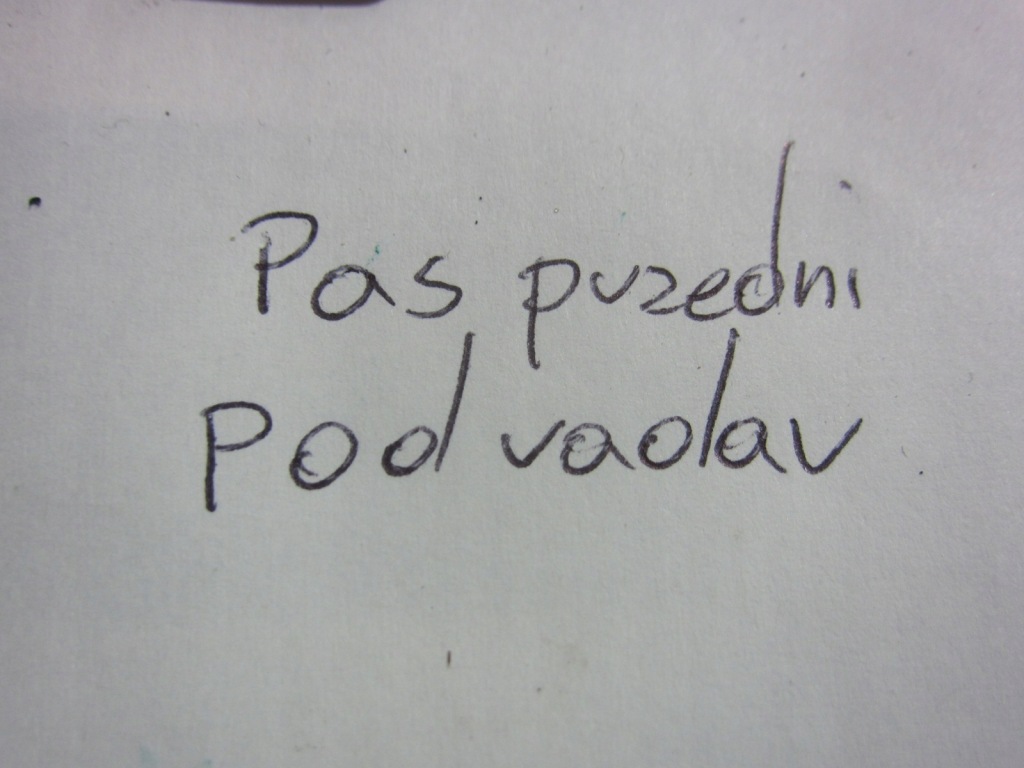 Pas puzedni
pod vadav